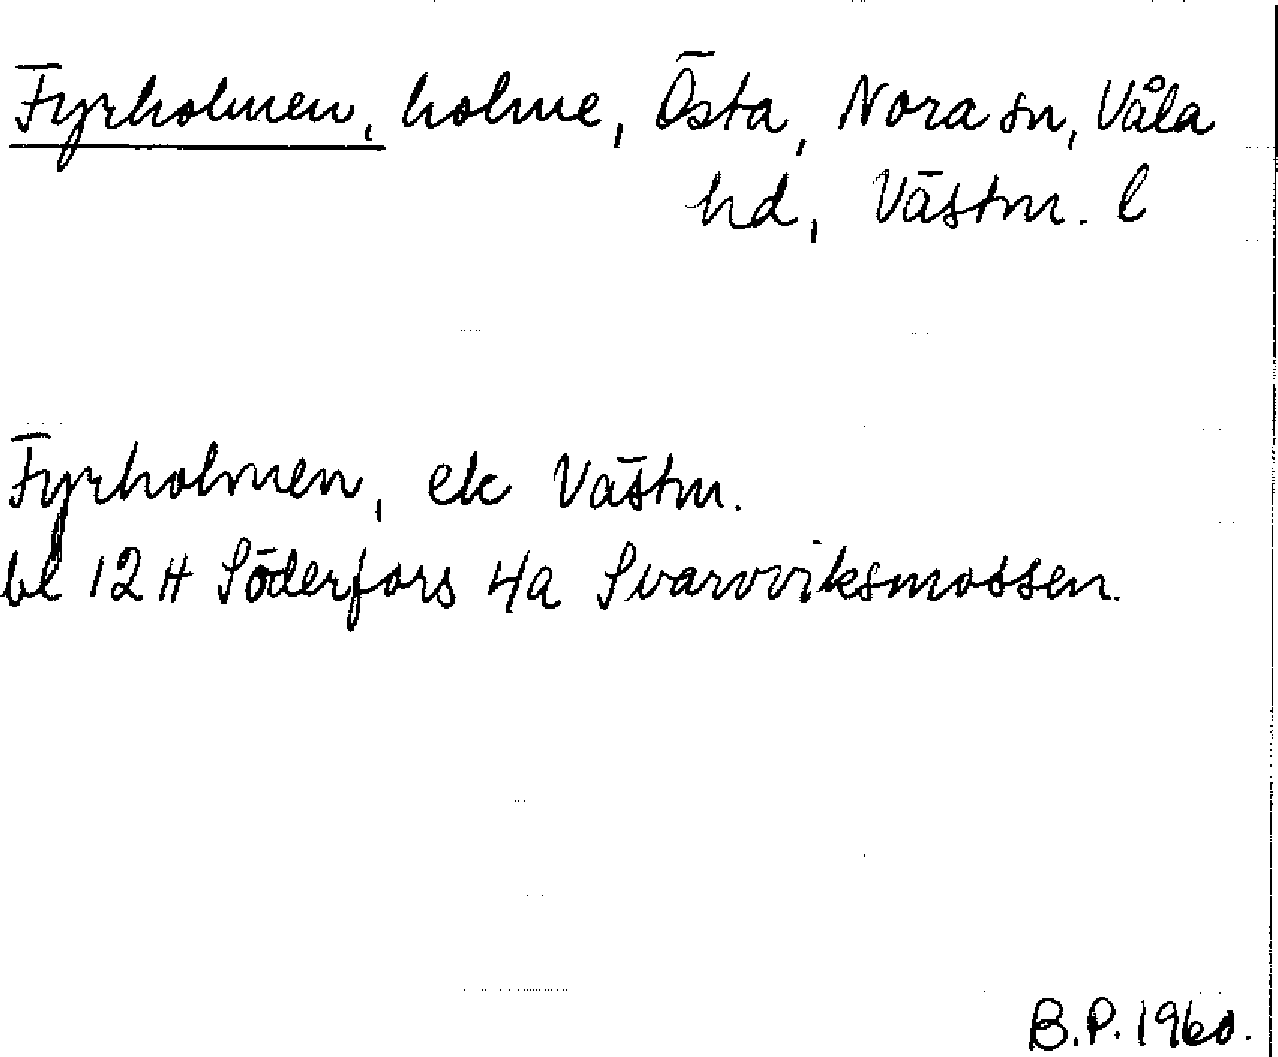 Fyrholmen, holme, Östa, Nora sn, Våla
hd, Västm. l
Fyrholmen, ek Västm.
bl 12 H Söderfors 4a Svarvviksmossen.
B.P. 1960.